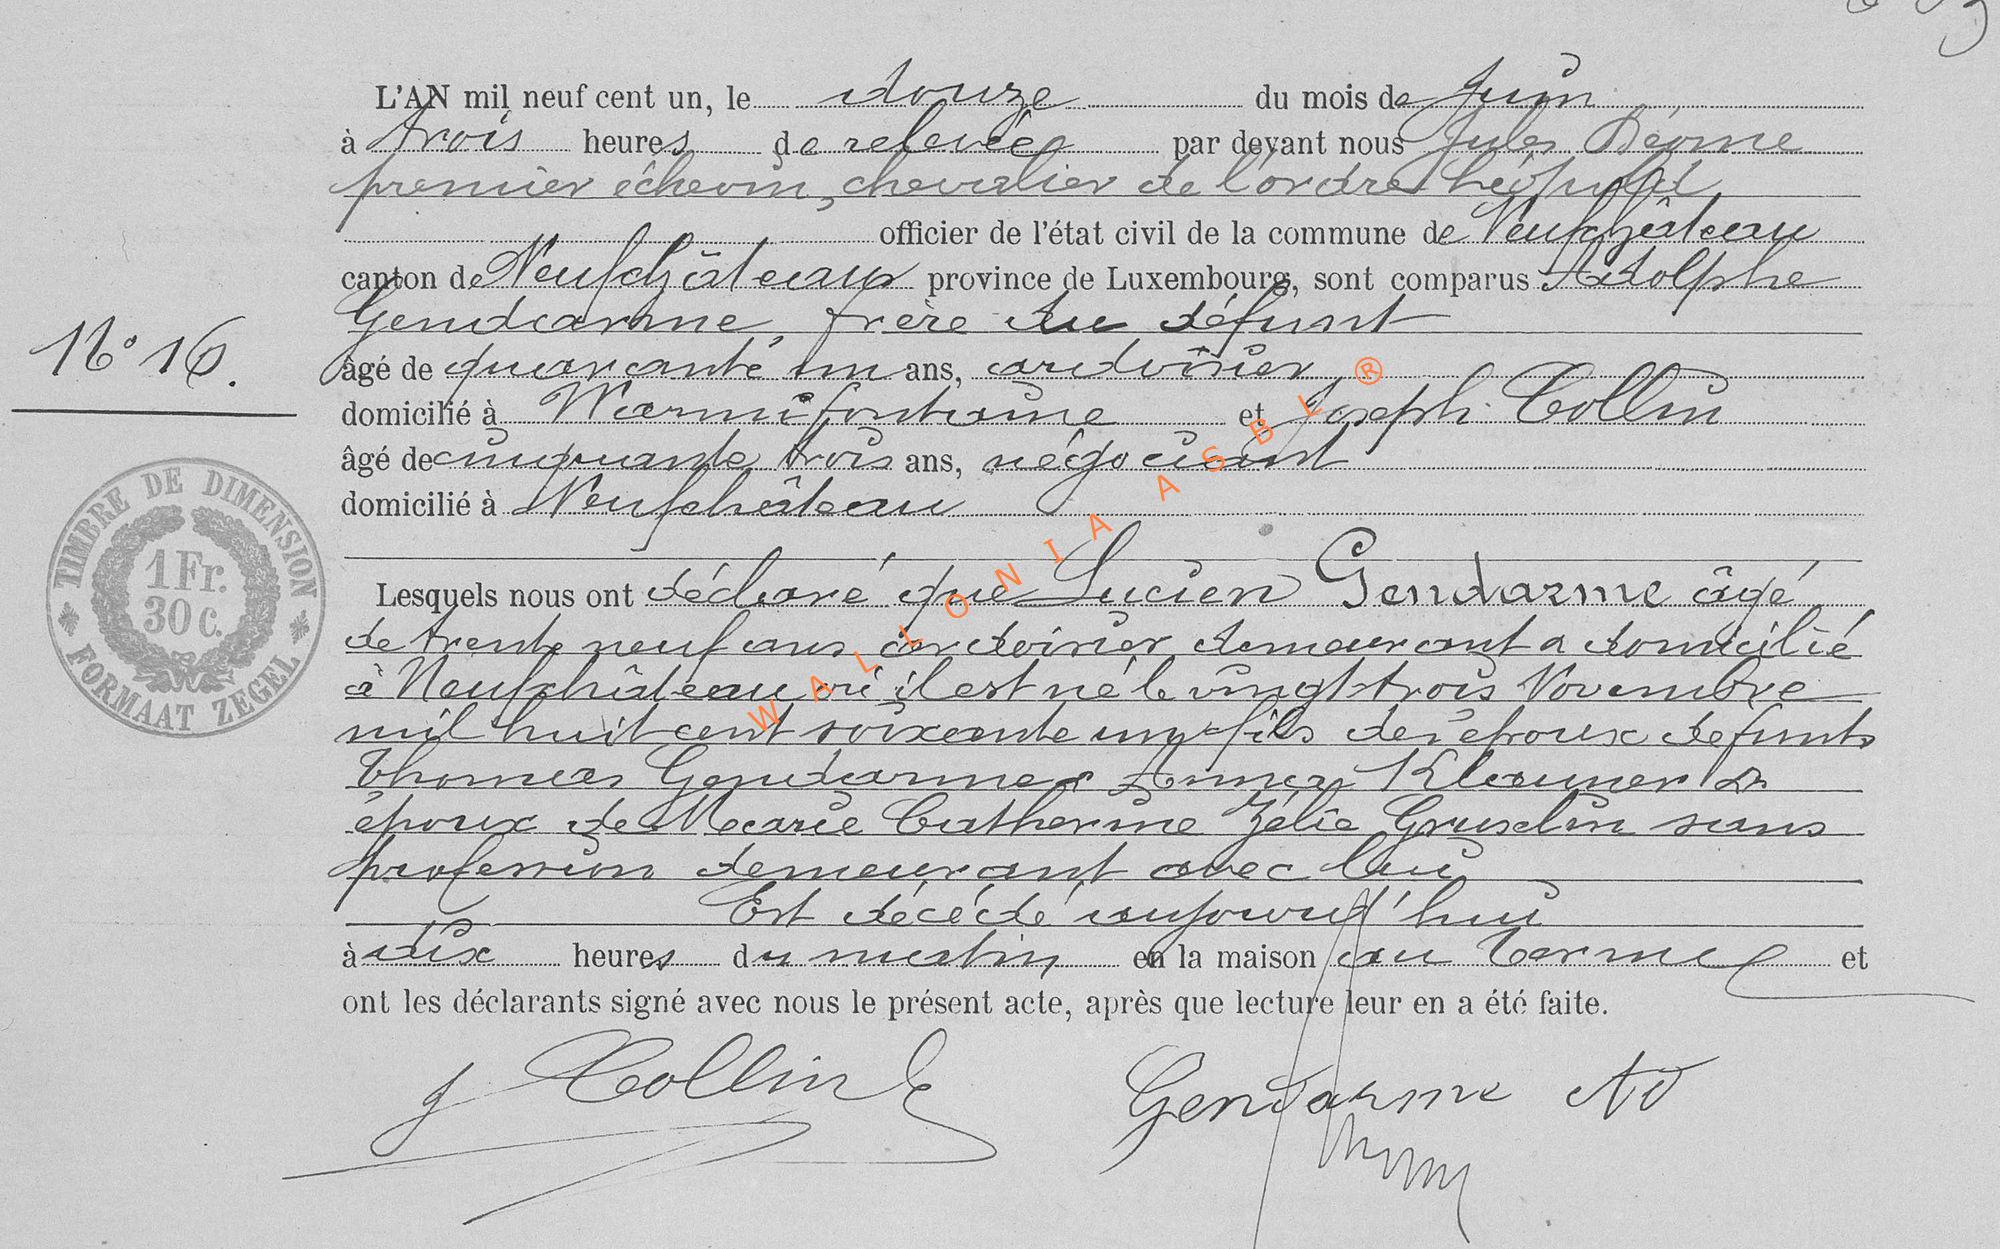 L'AN mil neuf cent un, le douze du mois de Juin
à trois heures de relevée par devant nous Jules
premier échevin, chevalier de l'ordre Léopold
officier de l'état civil de la commune de Neufchâteau
canton de Neufchâteau province de Luxembourg, sont comparus Adolphe
Gendarme, frère du défunt
N° 16.
âgé de quarante un ans, ardoisier
domicilié à Warmifontaine et Joseph Collin
âgé de cinquante trois ans, négociant
domicilié à Neufchâteau
Lesquels nous ont déclaré que Lucien Gendarme âgé
de trente neuf ans ardoisier demeurant & domicilié
à Neufchâteau où il est né le vingt trois Novembre
mil huit cent soixante un fils des époux défunts
Thomas Gendarme & Anna Klauner &
époux de Marie Catherine Zélie Gruslin sans
profession demeurant avec lui
Est décédé aujourd'hui
à dix heures du matin en la maison au Terme et
ont les déclarants signé avec nous le présent acte, après que lecture leur en a été faite.
J Collin Gendarme Ad
TIMBRE DE DIMENSION
1 Fr.
30 c.
FORMAAT ZEGEL
WALLONIA ASBL ®